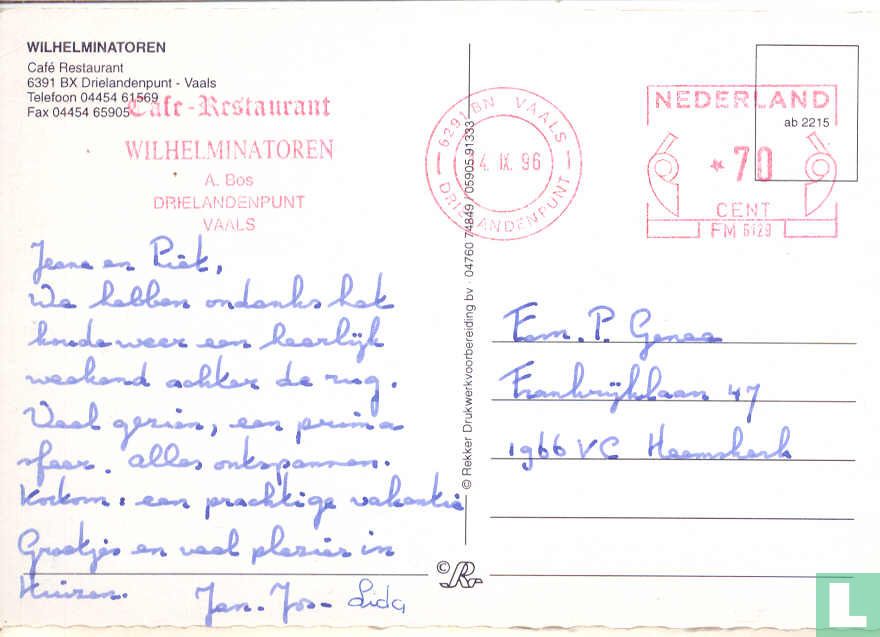 WILHELMINATOREN
Café Restaurant
6391 BX Drielandenpunt - Vaals
Telefoon 04454 61569
Fax 04454 65905
Cafe-Restaurant
WILHELMINATOREN
A. Bos
DRIELANDENPUNT
VAALS
6291 BN VAALS
4. IX. 96
DRIELANDENPUNT
NEDERLAND
ab 2215
* 70
CENT
FM 6129
Jeane en Piet,
We hebben ondanks het
koude weer een heerlijk
weekend achter de rug.
Veel gezien, een prima
sfeer. alles ontspannen.
Kortom: een prachtige vakantie
Groetjes en veel plezier in
Huizen.
Jan - Jos - Lida
© Rekker Drukwerkvoorbereiding bv - 04760 74849 / 05905 91333
Fam. P. Genee
Frankrijklaan 47
1966 VC Heemskerk
©R
L